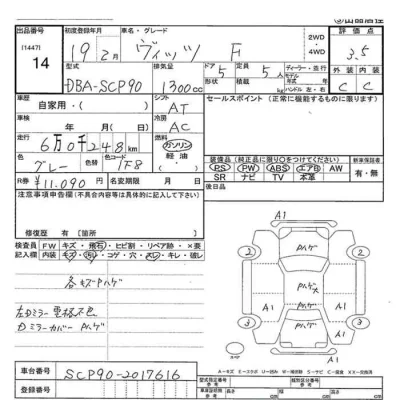 出品番号
[1447]
14
初度登録年月
19年2月
車名・グレード
ヴィッツ F
2WD
・
4WD
評価点
3.5
型式
DBA-SCP90
排気量
1300cc
ドア
形状
5
定員
積載
5人
kg
ディーラー・並行
モデル
年
ハンドル 左・右
外装
内装
C
C
車歴
自家用・( )
シフト
AT
セールスポイント(正常に機能するものに限ります)
車検
年 月
冷房
AC
走行
6万0千248km
燃料
ガソリン
軽油
色
グレー
色替
色コード
1F8
R券
¥11,090
名変期限
月 日
装備品(純正品に限り○をつけてください)
PS PW ABS エアB AW
SR ナビ TV 本革
新車保証書
有・無
後日品
注意事項申告欄(不具合内容等は具体的に記入して下さい)
修復歴 有[箇所
検査員
記入欄
FW キズ・飛石・ヒビ割・リペア跡・×要
内装 キズ・汚れ・コゲ・穴・スレ・キレ・破レ
各キズPハゲ
左Dミラー 格納不良
Dミラーカバー Pハゲ
A1
Pハゲ
2
2
Pハゲ
A1
A1
3
3
Pハゲ
A1
車台番号
SCP90-2017616
登録番号
型式指定番号
参考
類別区分番号
参考
車両証明
参考
長さ
cm
幅
cm
高さ
cm